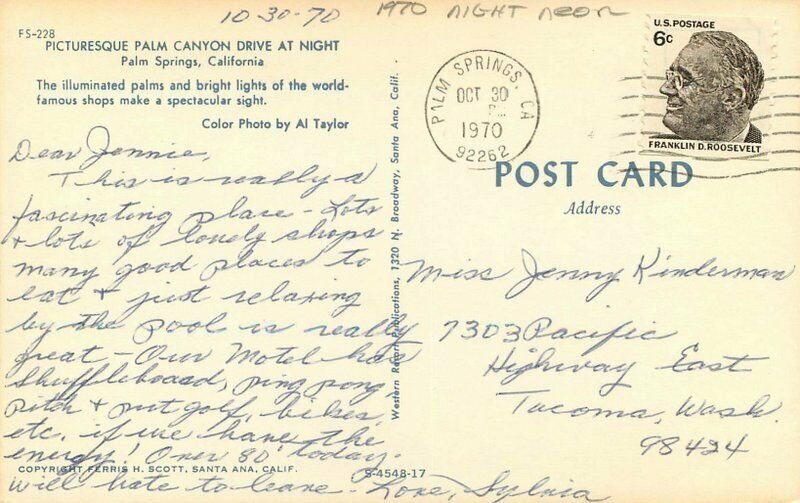 10-30-70 1970 NIGHT NEON
FS-228
PICTURESQUE PALM CANYON DRIVE AT NIGHT
Palm Springs, California
The illuminated palms and bright lights of the world-
famous shops make a spectacular sight.
Color Photo by Al Taylor
Dear Jennie,
This is really a
fascinating place - Lots
+ lots of lovely shops
many good places to
eat + just relaxing
by the pool is really
great - Our Motel has
Shuffleboard, ping pong,
pitch + put golf, bikes,
etc. if we have the
energy! Over 80° today.
COPYRIGHT FERRIS H. SCOTT, SANTA ANA, CALIF.
S-4548-17
will hate to leave - Love, Sylvia
Western Resort Publications, 1320 N. Broadway, Santa Ana, Calif.
PALM SPRINGS, CA
OCT 30
1970
92262
U.S. POSTAGE
6c
FRANKLIN D. ROOSEVELT
POST CARD
Address
Miss Jenny Kinderman
7303 Pacific
Highway East
Tacoma, Wash.
98424